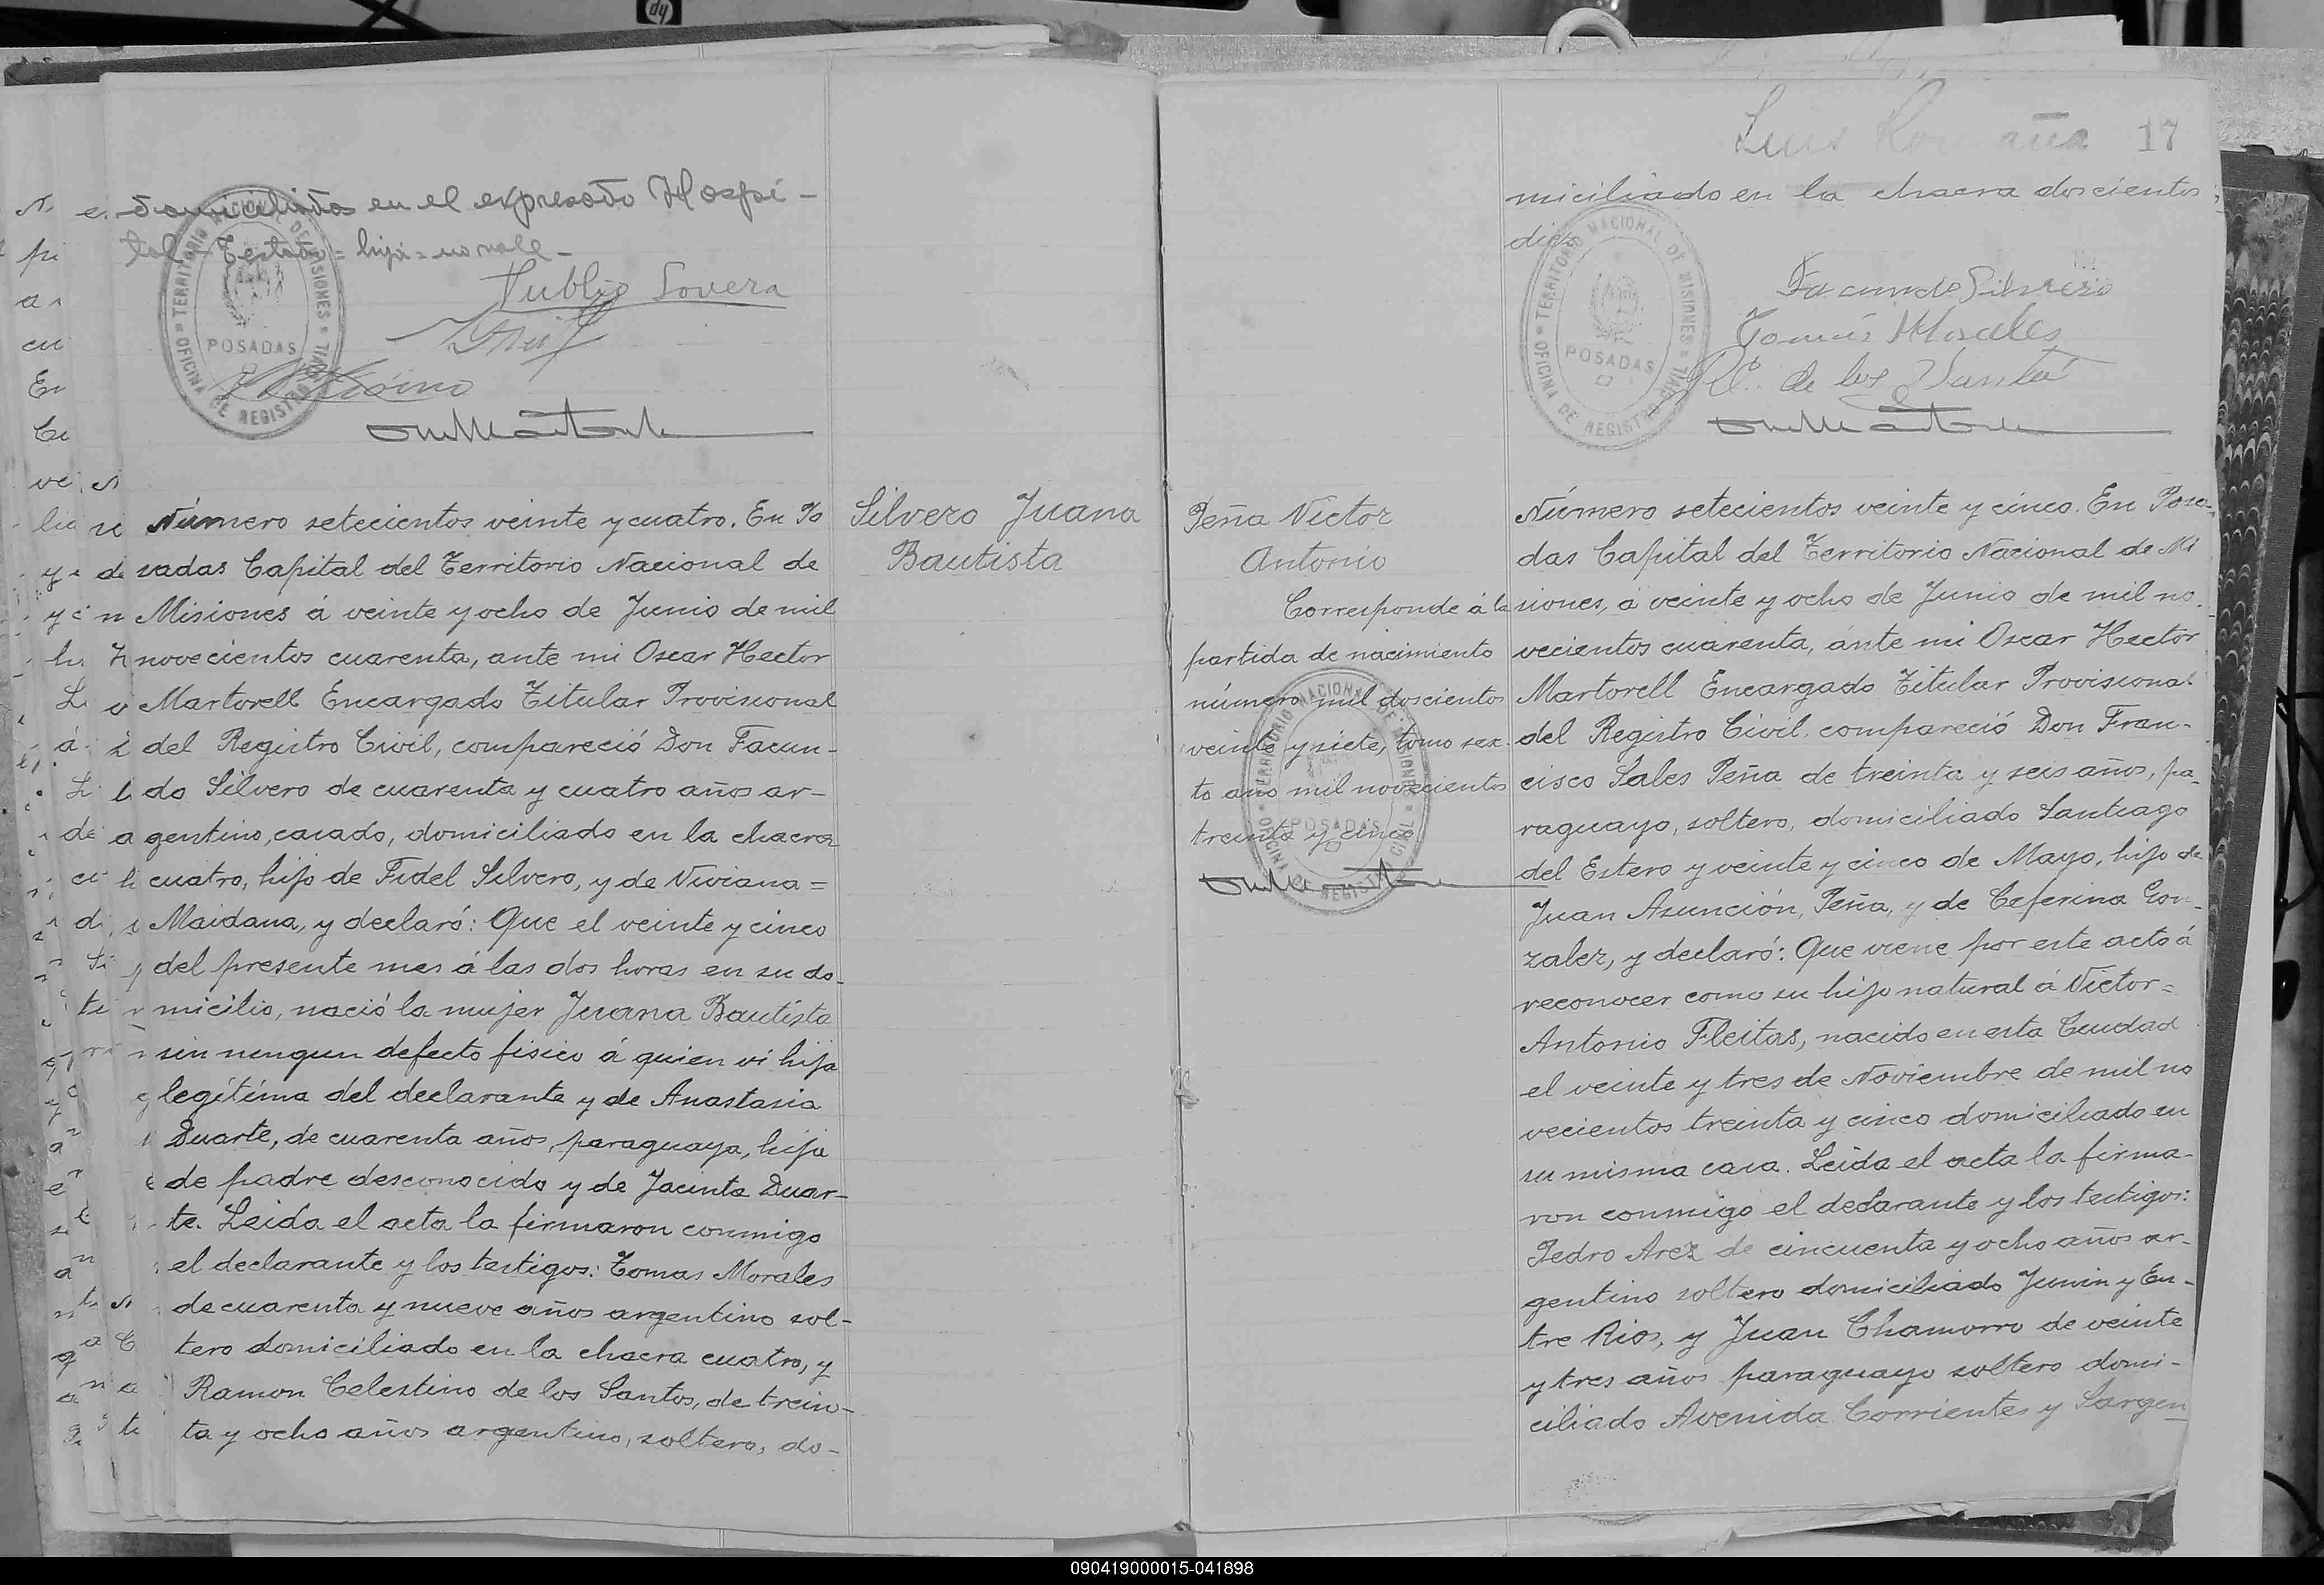 domiciliado en el expresado Hospi-
tal - Testado = hija = no vale -
Publio Lovera
TERRITORIO NACIONAL DE MISIONES = OFICINA DE REGISTRO CIVIL =
POSADAS
Número setecientos veinte y cuatro. En Po
sadas Capital del Territorio Nacional de
Misiones á veinte y ocho de Junio de mil
novecientos cuarenta, ante mi Oscar Hector
Martorell Encargado Titular Provisional
del Registro Civil, compareció Don Facun-
do Silvero de cuarenta y cuatro años ar-
gentino, casado, domiciliado en la chacra
cuatro, hijo de Fidel Silvero, y de Viviana =
Maidana, y declaró: Que el veinte y cinco
del presente mes á las dos horas en su do-
micilio, nació la mujer Juana Bautista
sin ningun defecto fisico á quien vi hija
legítima del declarante y de Anastasia
Duarte, de cuarenta años, paraguaya, hija
de padre desconocido y de Jacinta Duar-
te. Leida el acta la firmaron conmigo
el declarante y los testigos: Tomas Morales
de cuarenta y nueve años argentino sol-
tero domiciliado en la chacra cuatro, y
Ramon Celestino de los Santos, de trein-
ta y ocho años argentino, soltero, do-
Silvero Juana
Bautista
Luis Romaña 17
miciliado en la chacra doscientos
diez
TERRITORIO NACIONAL DE MISIONES = OFICINA DE REGISTRO CIVIL =
POSADAS
Facundo Silvero
Tomás Morales
Rº. de los Santos
Peña Victor
Antonio
Corresponde á la
partida de nacimiento
número mil doscientos
veinte y siete, tomo sex-
to año mil novecientos
treinta y cinco
TERRITORIO NACIONAL DE MISIONES = OFICINA DE REGISTRO CIVIL =
POSADAS
Número setecientos veinte y cinco. En Posa-
das Capital del Territorio Nacional de Mi
siones, á veinte y ocho de Junio de mil no-
vecientos cuarenta, ante mi Oscar Hector
Martorell Encargado Titular Provisional
del Registro Civil, compareció Don Fran-
cisco Sales Peña de treinta y seis años, pa-
raguayo, soltero, domiciliado Santiago
del Estero y veinte y cinco de Mayo, hijo de
Juan Asunción, Peña, y de Ceferina Gon-
zalez, y declaró: Que viene por este acto á
reconocer como su hijo natural á Victor =
Antonio Fleitas, nacido en esta Ciudad
el veinte y tres de Noviembre de mil no
vecientos treinta y cinco domiciliado en
su misma casa. Leida el acta la firma-
ron conmigo el declarante y los testigos:
Pedro Arez de cincuenta y ocho años ar-
gentino soltero domiciliado Junin y En-
tre Rios, y Juan Chamorro de veinte
y tres años paraguayo soltero domi-
ciliado Avenida Corrientes y Sargen
090419000015-041898